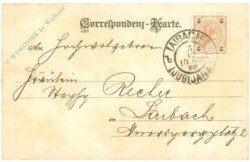 Correspondenz-Karte.
LAIBACH
LJUBLJANA
An Hochwolgeboren
Fräulein
Stephy Recher
Laibach
Auerspergplatz 2